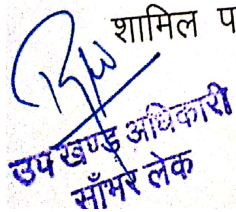 शामिल प
उपखण्ड अधिकारी
साँभर लेक